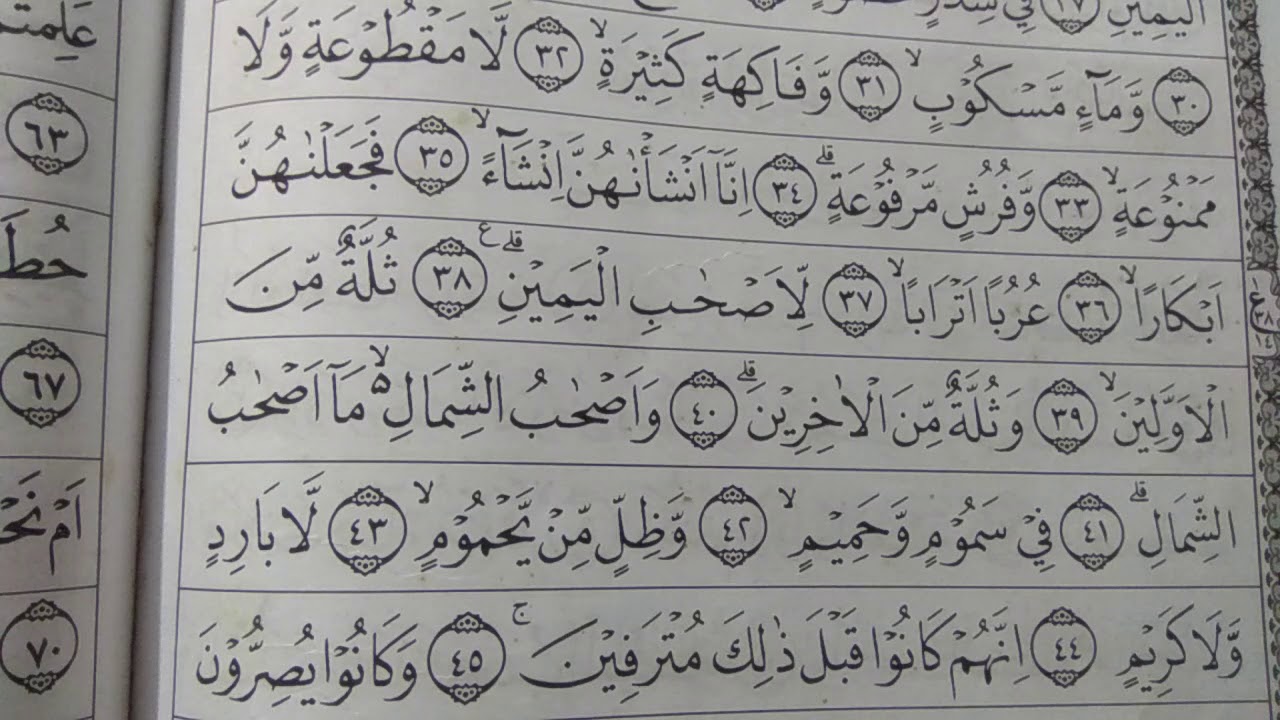 الْيَمِيْنِ ﴿٢٧﴾ فِيْ سِدْرٍ
﴿٣٠﴾ وَّمَآءٍ مَّسْكُوْبٍ ۙ ﴿٣١﴾ وَّفَاكِهَةٍ كَثِيْرَةٍ ۙ ﴿٣٢﴾ لَّا مَقْطُوْعَةٍ وَّلَا
مَمْنُوْعَةٍ ۙ ﴿٣٣﴾ وَّفُرُشٍ مَّرْفُوْعَةٍ ۗ ﴿٣٤﴾ اِنَّآ اَنْشَأْنٰهُنَّ اِنْشَآءً ۙ ﴿٣٥﴾ فَجَعَلْنٰهُنَّ
اَبْكَارًا ۙ ﴿٣٦﴾ عُرُبًا اَتْرَابًا ۙ ﴿٣٧﴾ لِّاَصْحٰبِ الْيَمِيْنِ ۗ ع ﴿٣٨﴾ ثُلَّةٌ مِّنَ
الْاَوَّلِيْنَ ۙ ﴿٣٩﴾ وَثُلَّةٌ مِّنَ الْاٰخِرِيْنَ ۗ ﴿٤٠﴾ وَاَصْحٰبُ الشِّمَالِ ەۙ مَآ اَصْحٰبُ
الشِّمَالِ ۗ ﴿٤١﴾ فِيْ سَمُوْمٍ وَّحَمِيْمٍ ۙ ﴿٤٢﴾ وَّظِلٍّ مِّنْ يَّحْمُوْمٍ ۙ ﴿٤٣﴾ لَّا بَارِدٍ
وَّلَا كَرِيْمٍ ﴿٤٤﴾ اِنَّهُمْ كَانُوْا قَبْلَ ذٰلِكَ مُتْرَفِيْنَ ۚ ﴿٤٥﴾ وَكَانُوْا يُصِرُّوْنَ
ع ٣٨ ١٤
﴿٦٣﴾
حُطَا
﴿٦٧﴾
اَمْ نَحْ
﴿٧٠﴾